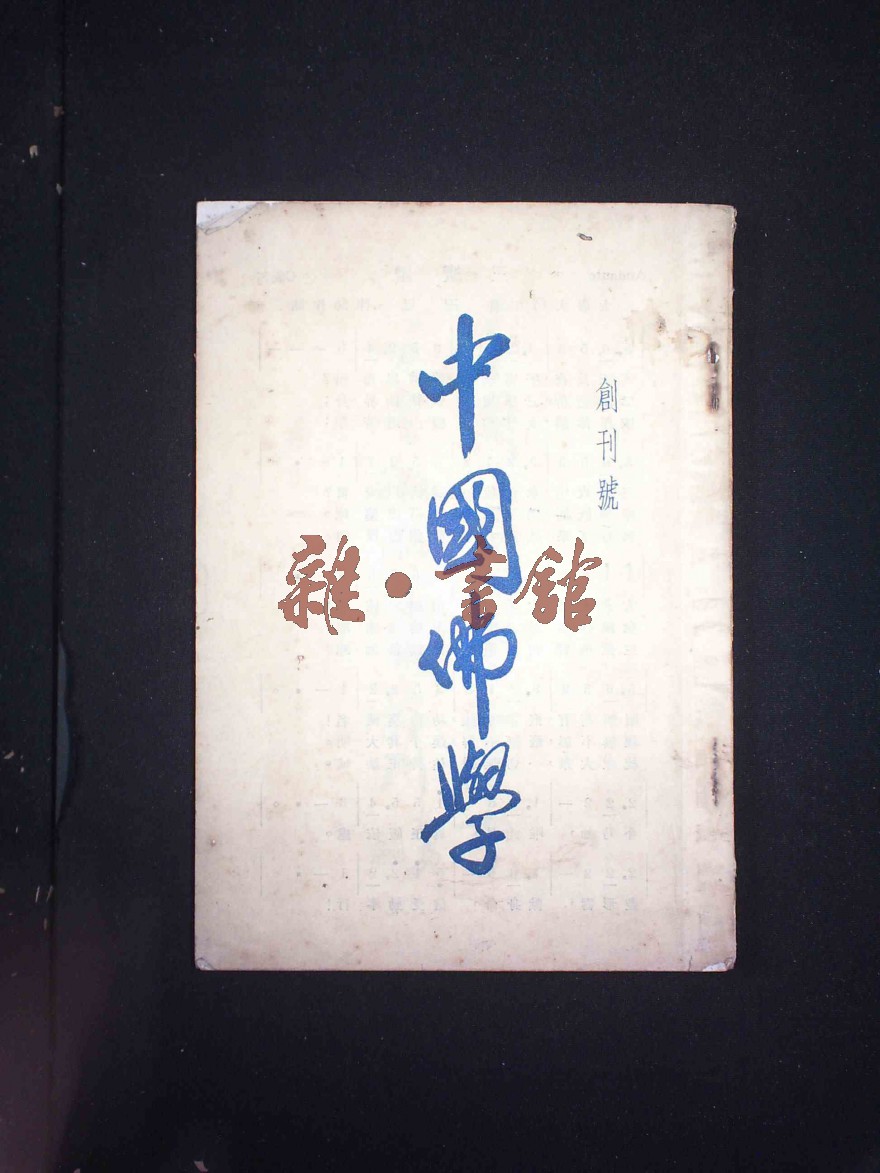 創刊號
中國佛學
雜·書館